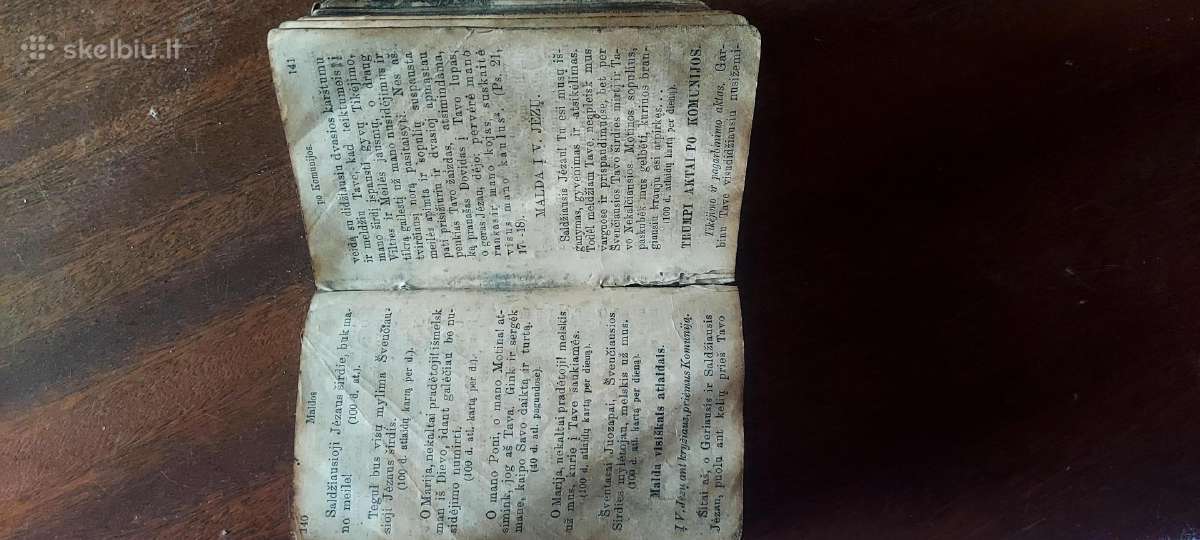 skelbiu.lt
140 Maldos
Saldžiausioji Jėzaus širdie, buk ma-
no meile!
(100 d. at.).
Tegul bus visų mylima Švenčiau-
sioji Jėzaus širdis.
(100 d. atlaidų kartą per d.).
O Marija, nekaltai pradėtoji! išmelsk
man iš Dievo, idant galėčiau be nu-
sidėjimo numirti.
(100 d. atl. kartą per d.).
O mano Poni, o mano Motina! at-
simink, jog aš Tava. Gink ir sergėk
mane, kaipo Savo daiktą ir turtą.
(40 d. atl. pagundose).
O Marija, nekaltai pradėtoji! melskis
už mus, kurie į Tave šaukiamės.
(100 d. atlaidų kartą per dieną).
Šventasai Juozapai, Švenčiausios
Širdies mylėtojau, melskis už mus.
(100 d. atl. kartą per dieną).
Malda visiškais atlaidais.
Į V. Jėzų ant kryžiaus, priėmus Komuniją.
Šitai aš, o Geriausis ir Saldžiausis
Jėzau, puolu ant kelių prieš Tavo
po Komunijos. 141
veidą su didžiausiu dvasios karštumu
ir meldžiu Tave, kad teiktumeis į
mano širdį įspausti gyvų Tikėjimo,
Vilties ir Meilės jausmų, o draug
tikrą gailestį už mano nusidėjimus ir
tvirčiausį norą pasitaisyti. Nes aš,
meilės apimta ir sopulių suspausta
pati prisižiuriu ir dvasioj apmąstau
penkias Tavo žaizdas, atsimindama,
ką pranašas Dovidas į Tavo lupas,
o geras Jėzau, dėjo: pervėrė mano
rankas ir mano kojas, suskaitė
visus mano kaulus“. (Ps. 21,
17-18).
MALDA Į V. JĖZŲ.
Saldžiausis Jėzau! Tu esi musų iš-
ganymas, gyvenimas ir atsikėlimas.
Todėl meldžiam Tavę, neapleisk mus
varguose ir prispaudimuose, bet per
Švenčiausios Tavo Širdies mirėjį ir Ta-
vo Nekalčiausios Motinos sopulius,
paskubėk mus gelbėti, kuriuos bran-
giausiu krauju esi atpirkęs...
(100 d. atlaidų kartą per dieną).
TRUMPI AKTAI PO KOMUNIJOS.
Tikėjimo ir pagarbinimo aktas. Gar-
binu Tave visadidžiausiu nusižemi-